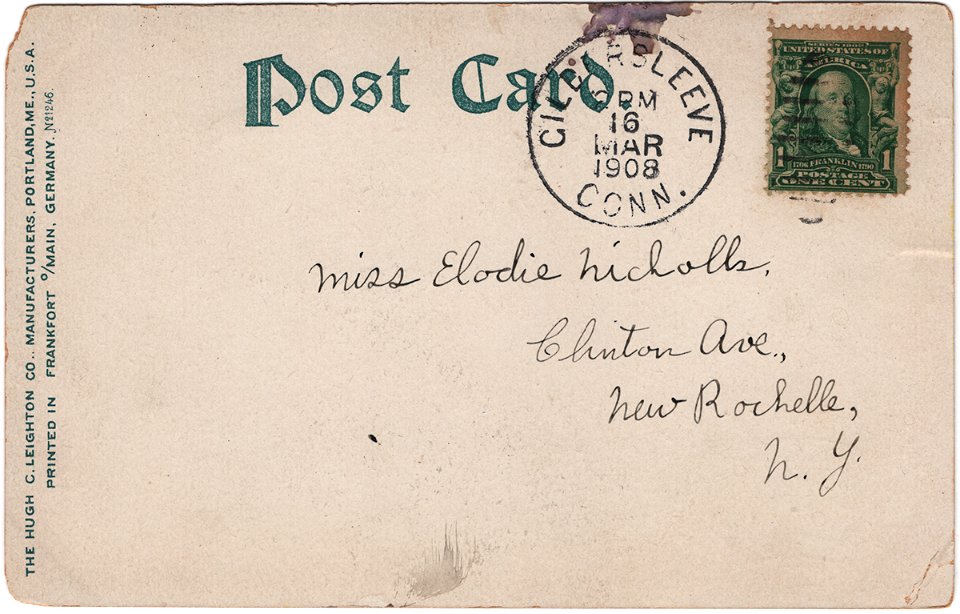 Post Card.
GILDERSLEEVE
PM
16
MAR
1908
CONN.
SERIES 1902
UNITED STATES OF
AMERICA
1 1706 FRANKLIN 1790 1
POSTAGE
ONE CENT
Miss Elodie Nicholls,
Clinton Ave.,
New Rochelle,
N. Y.
THE HUGH C. LEIGHTON CO., MANUFACTURERS, PORTLAND, ME., U.S.A.
PRINTED IN FRANKFORT o/MAIN, GERMANY. No 21246.